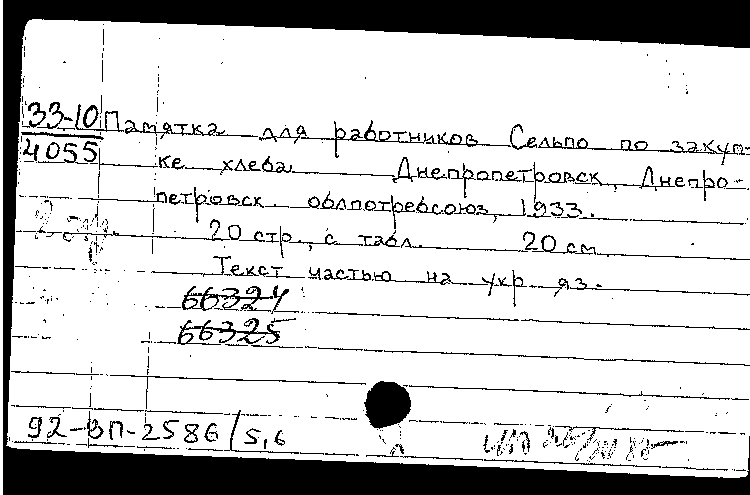 33-10 Памятка для работников Сельпо по закуп-
4055 ке хлеба Днепропетровск, Днепро-
петровск. облпотребсоюз, 1933.
20 стр., с табл. 20 см.
Текст частью на укр. яз.
66324
66325
92-ВП-2586/5,6